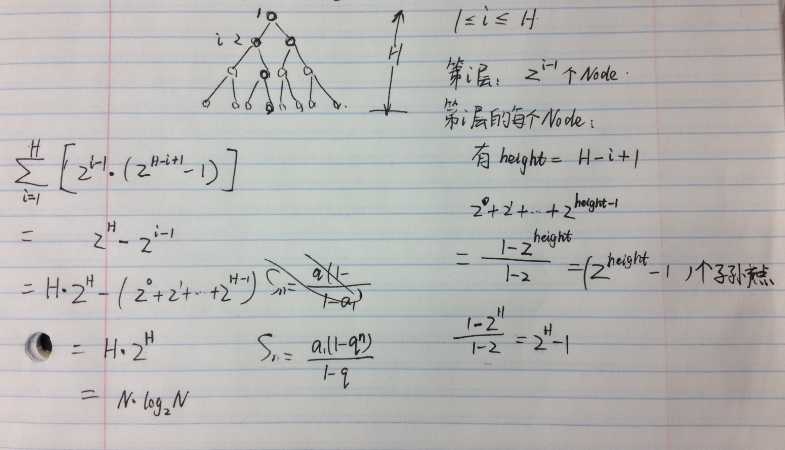 1
i=2
H
1≤i≤H
第i层: 2^{i-1}个Node.
第i层的每个Node:
有height = H-i+1
2^0+2^1+…+2^{height-1}
= \frac{1-2^{height}}{1-2} = (2^{height}-1)个子孙节点
\frac{1-2^H}{1-2} = 2^H-1
\sum_{i=1}^{H} [2^{i-1}·(2^{H-i+1}-1)]
= 2^H-2^{i-1}
= H·2^H-(2^0+2^1+…+2^{H-1})
= H·2^H
= N·log_2N
S_n= \frac{a_1(1-q^n)}{1-q}